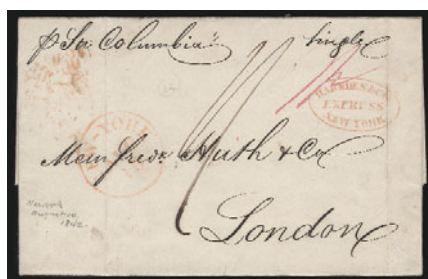 p Str Columbia Single
HARNDEN & Co
EXPRESS
NEW YORK
NEW-YORK
Mess Fredk Huth & Co
London
1842